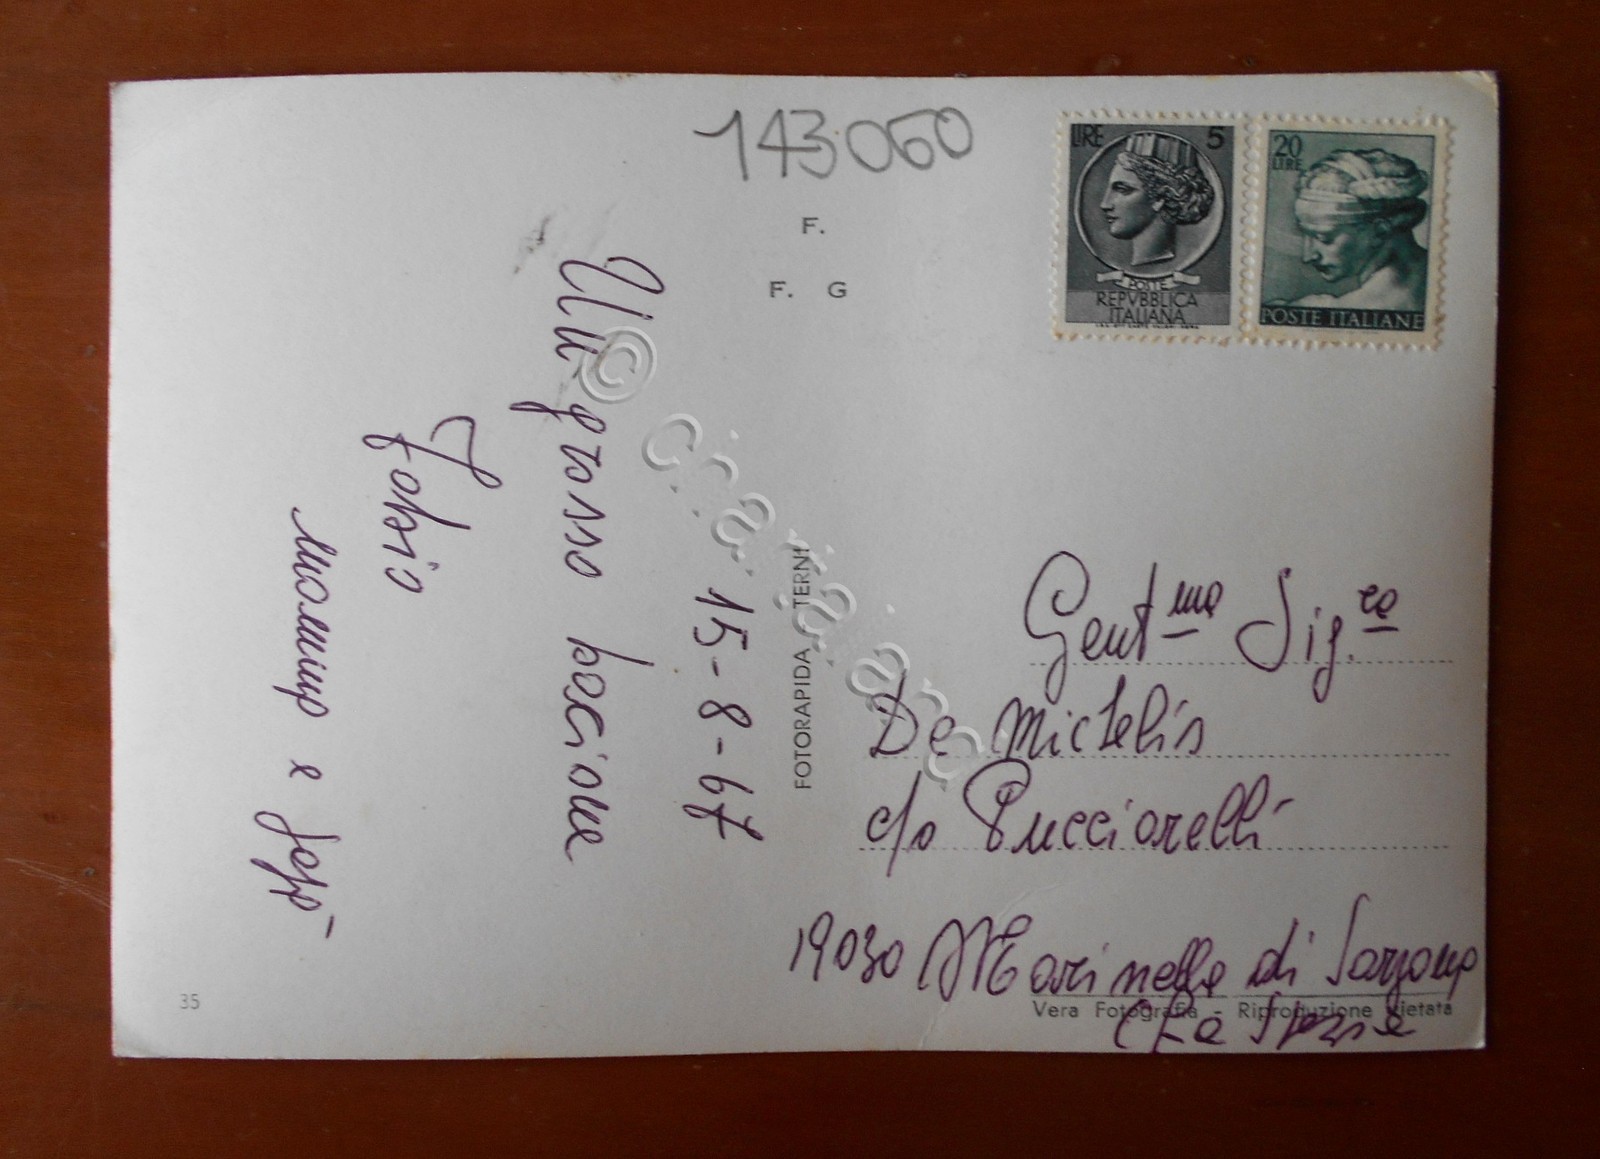 143060
F.
F. G
LIRE 5
POSTE
REPVBBLICA
ITALIANA
20
LIRE
POSTE ITALIANE
15-8-67
Un grosso bacione
Fabio
mamma e
FOTORAPIDA TERNI
© cartaria.ro
Gent.ma Sig.ra
De Michelis
c/o Pucciarelli
19030 Marinella di Sarzana
(La Spezia
35
Vera Fotografia - Riproduzione vietata